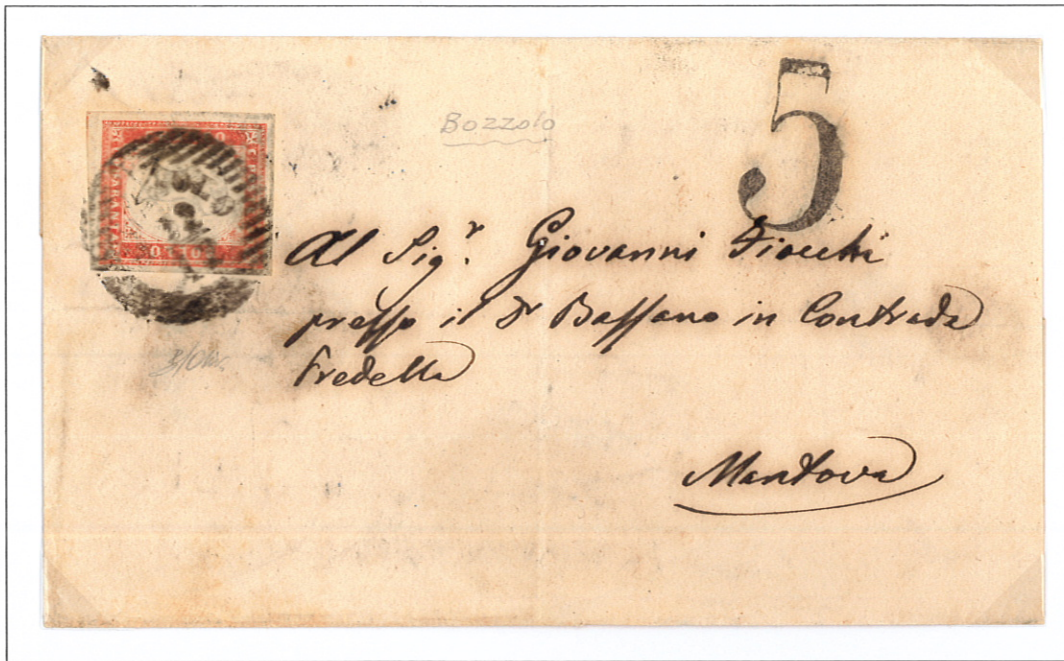 Bozzolo
5
Al Sig.r Giovanni Fiocchi
presso il Dr Bassano in Contrada
Fredella
Mantova